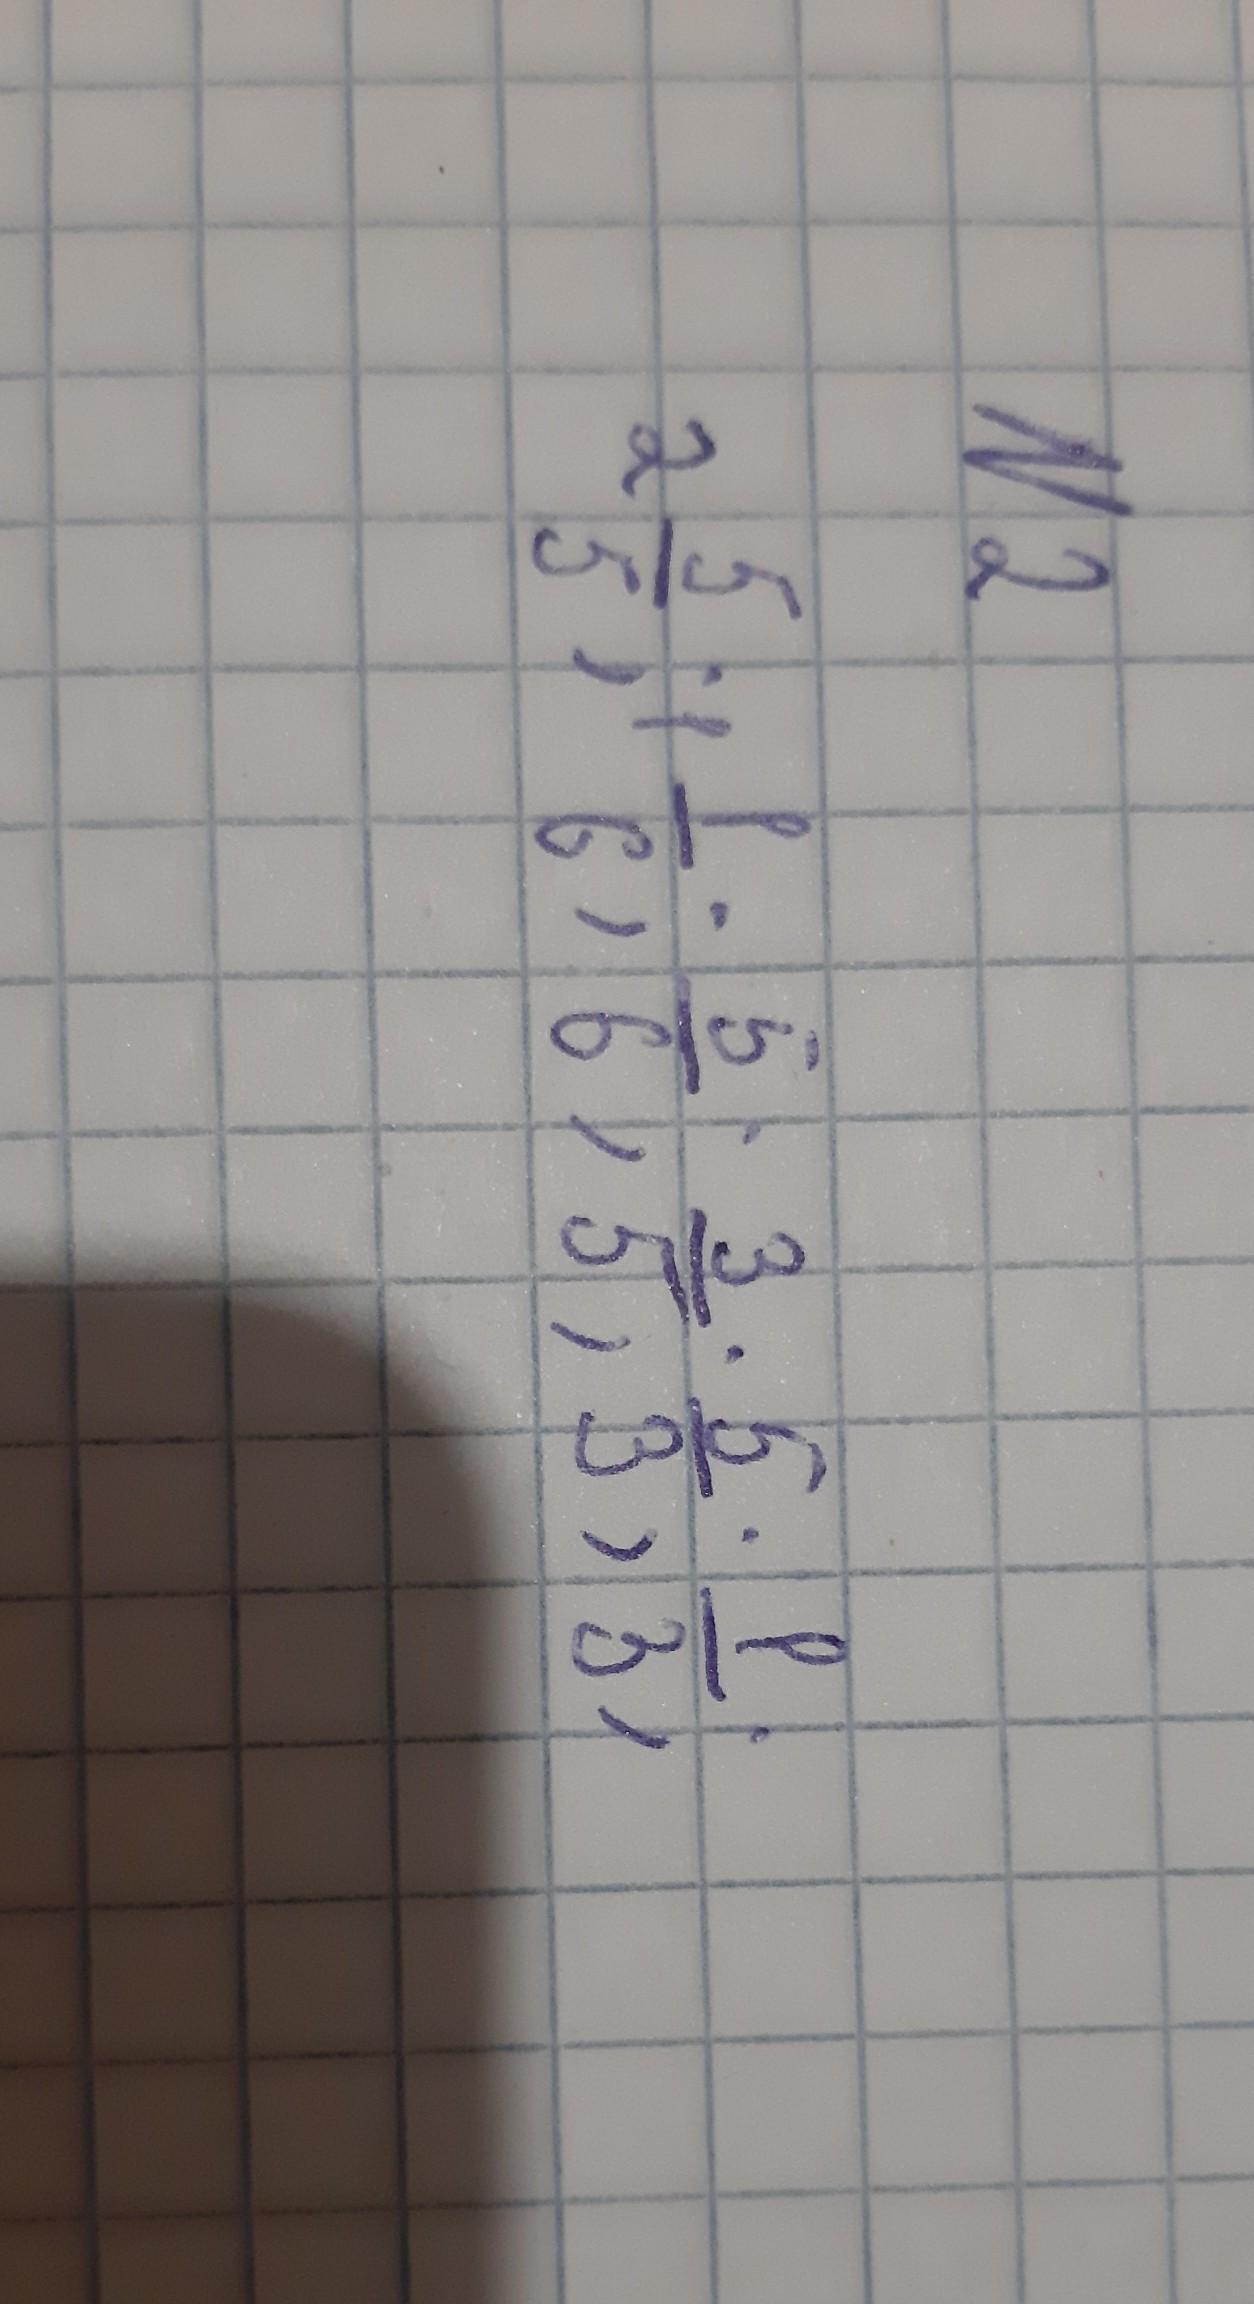 N2
2 5/5; 1 1/6; 5/6; 3/5; 5/3; 1/3;